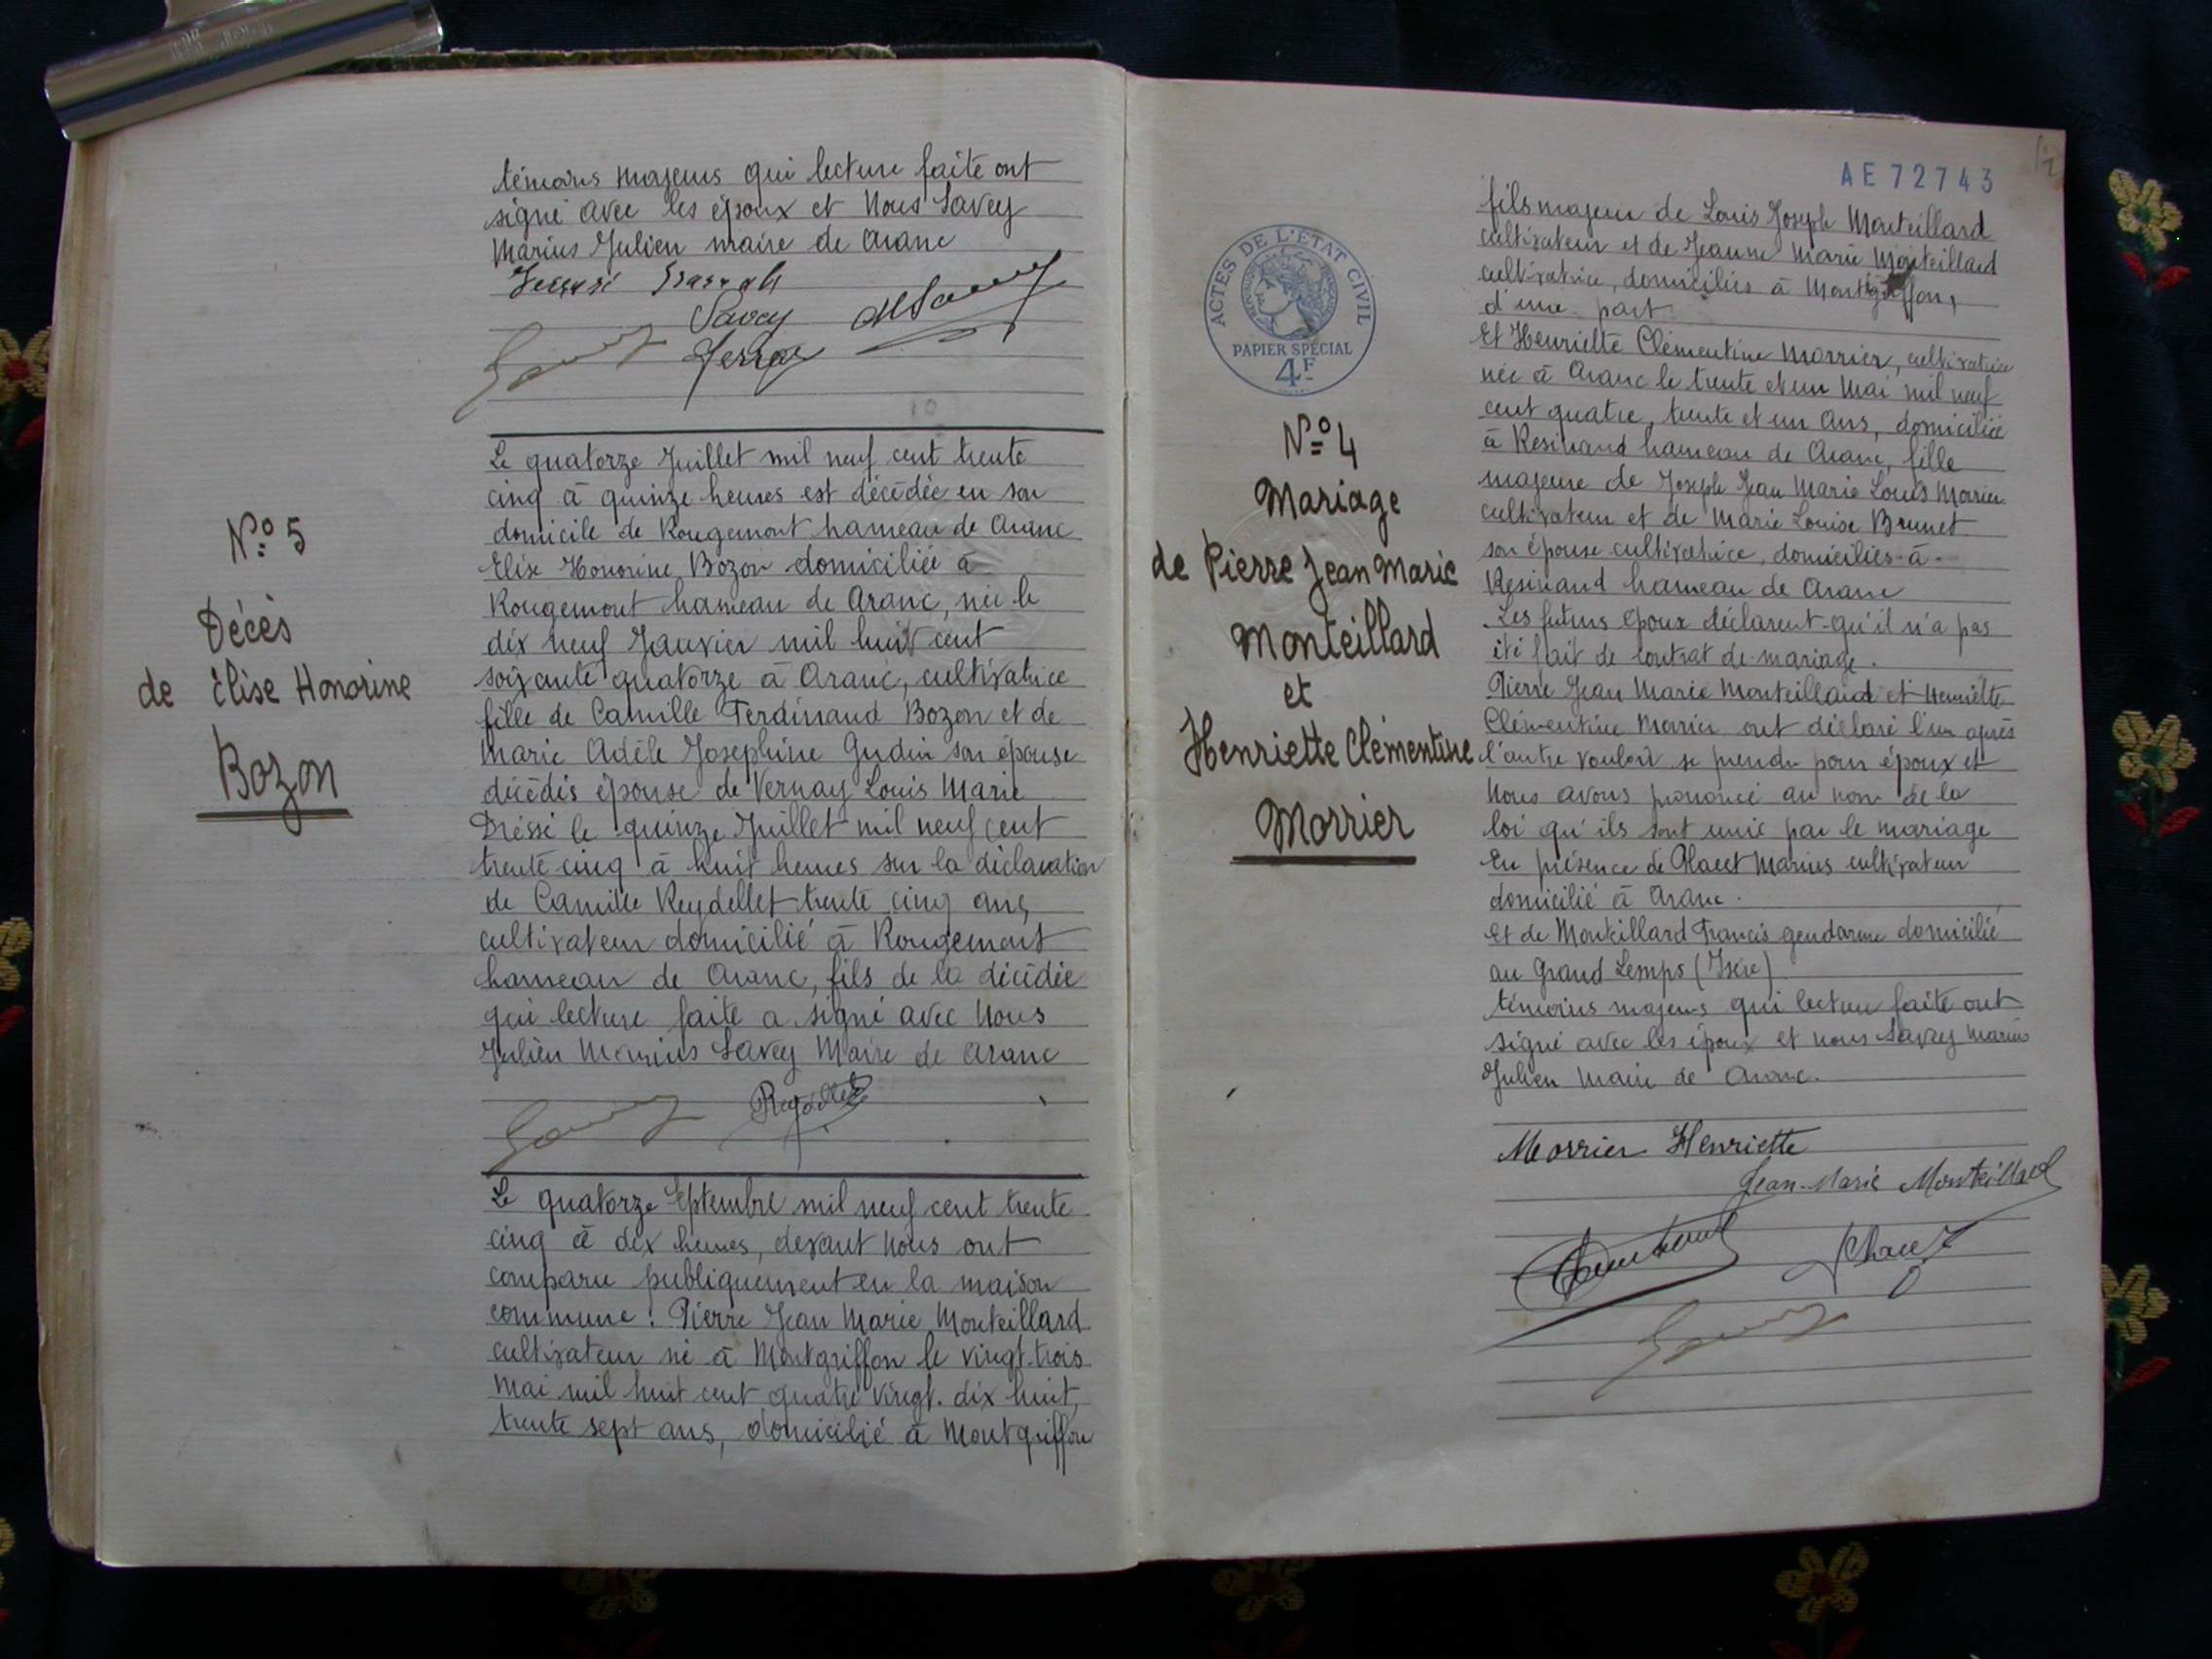 témoins majeurs qui lecture faite ont
signé avec les époux et Nous Savey
Marius Julien maire de Aranc
Savey
Le quatorze Juillet mil neuf cent trente
cinq à quinze heures est décédée en son
domicile de Rougemont hameau de Aranc
Elise Honorine Bozon domiciliée à
Rougemont hameau de Aranc, née le
dix neuf Janvier mil huit cent
soixante quatorze à Aranc, cultivatrice
fille de Camille Ferdinand Bozon et de
Marie Adèle Josephine Gudin son épouse
décédés épouse de Vernay Louis Marie
Dressé le quinze Juillet mil neuf cent
trente cinq à huit heures sur la déclaration
de Camille Reydellet trente cinq ans,
cultivateur domicilié à Rougemont
hameau de Aranc, fils de la décédée
qui lecture faite a signé avec Nous
Julien Marius Savey Maire de Aranc
Reydellet
Le quatorze Septembre mil neuf cent trente
cinq à dix heures, devant Nous ont
comparu publiquement en la maison
commune : Pierre Jean Marie Monteillard
cultivateur né à Montgriffon le vingt-trois
Mai mil huit cent quatre vingt. dix huit,
trente sept ans, domicilié à Montgriffon
N° 5
Décès
de Elise Honorine
Bozon
AE 72743
fils majeur de Louis Joseph Monteillard
cultivateur et de Jeanne Marie Monteillard
cultivatrice, domiciliés à Montgriffon,
d'une part
Et Henriette Clémentine Morrier, cultivatrice
née à Aranc le trente et un Mai mil neuf
cent quatre, trente et un Ans, domiciliée
à Resinand hameau de Aranc, fille
majeure de Joseph Jean Marie Louis Morrier
cultivateur et de Marie Louise Brunet
son épouse cultivatrice, domiciliés-à-
Resinand hameau de Aranc
Les futurs époux déclarent qu'il n'a pas
été fait de contrat de mariage.
Pierre Jean Marie Monteillard et Henriette
Clémentine Morrier ont déclaré l'un après
l'autre vouloir se prendre pour époux et
Nous avons prononcé au nom de la
loi qu'ils sont unis par le mariage
En présence de Marius cultivateur
domicilié à Aranc.
Et de Monteillard Francis gendarme domicilié
au Grand Lemps (Isère)
témoins majeurs qui lecture faite ont
signé avec les époux et nous Savey Marius
Julien Maire de Aranc.
Morrier Henriette
Jean-Marie Monteillard
ACTES DE L'ÉTAT CIVIL
PAPIER SPÉCIAL
4F
N° 4
Mariage
de Pierre Jean Marie
Monteillard
et
Henriette Clémentine
Morrier